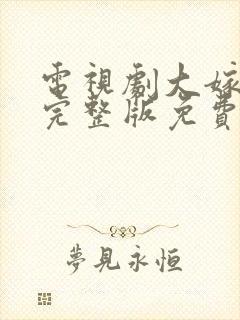 電視劇大嫁
完整版免費
夢見永恒